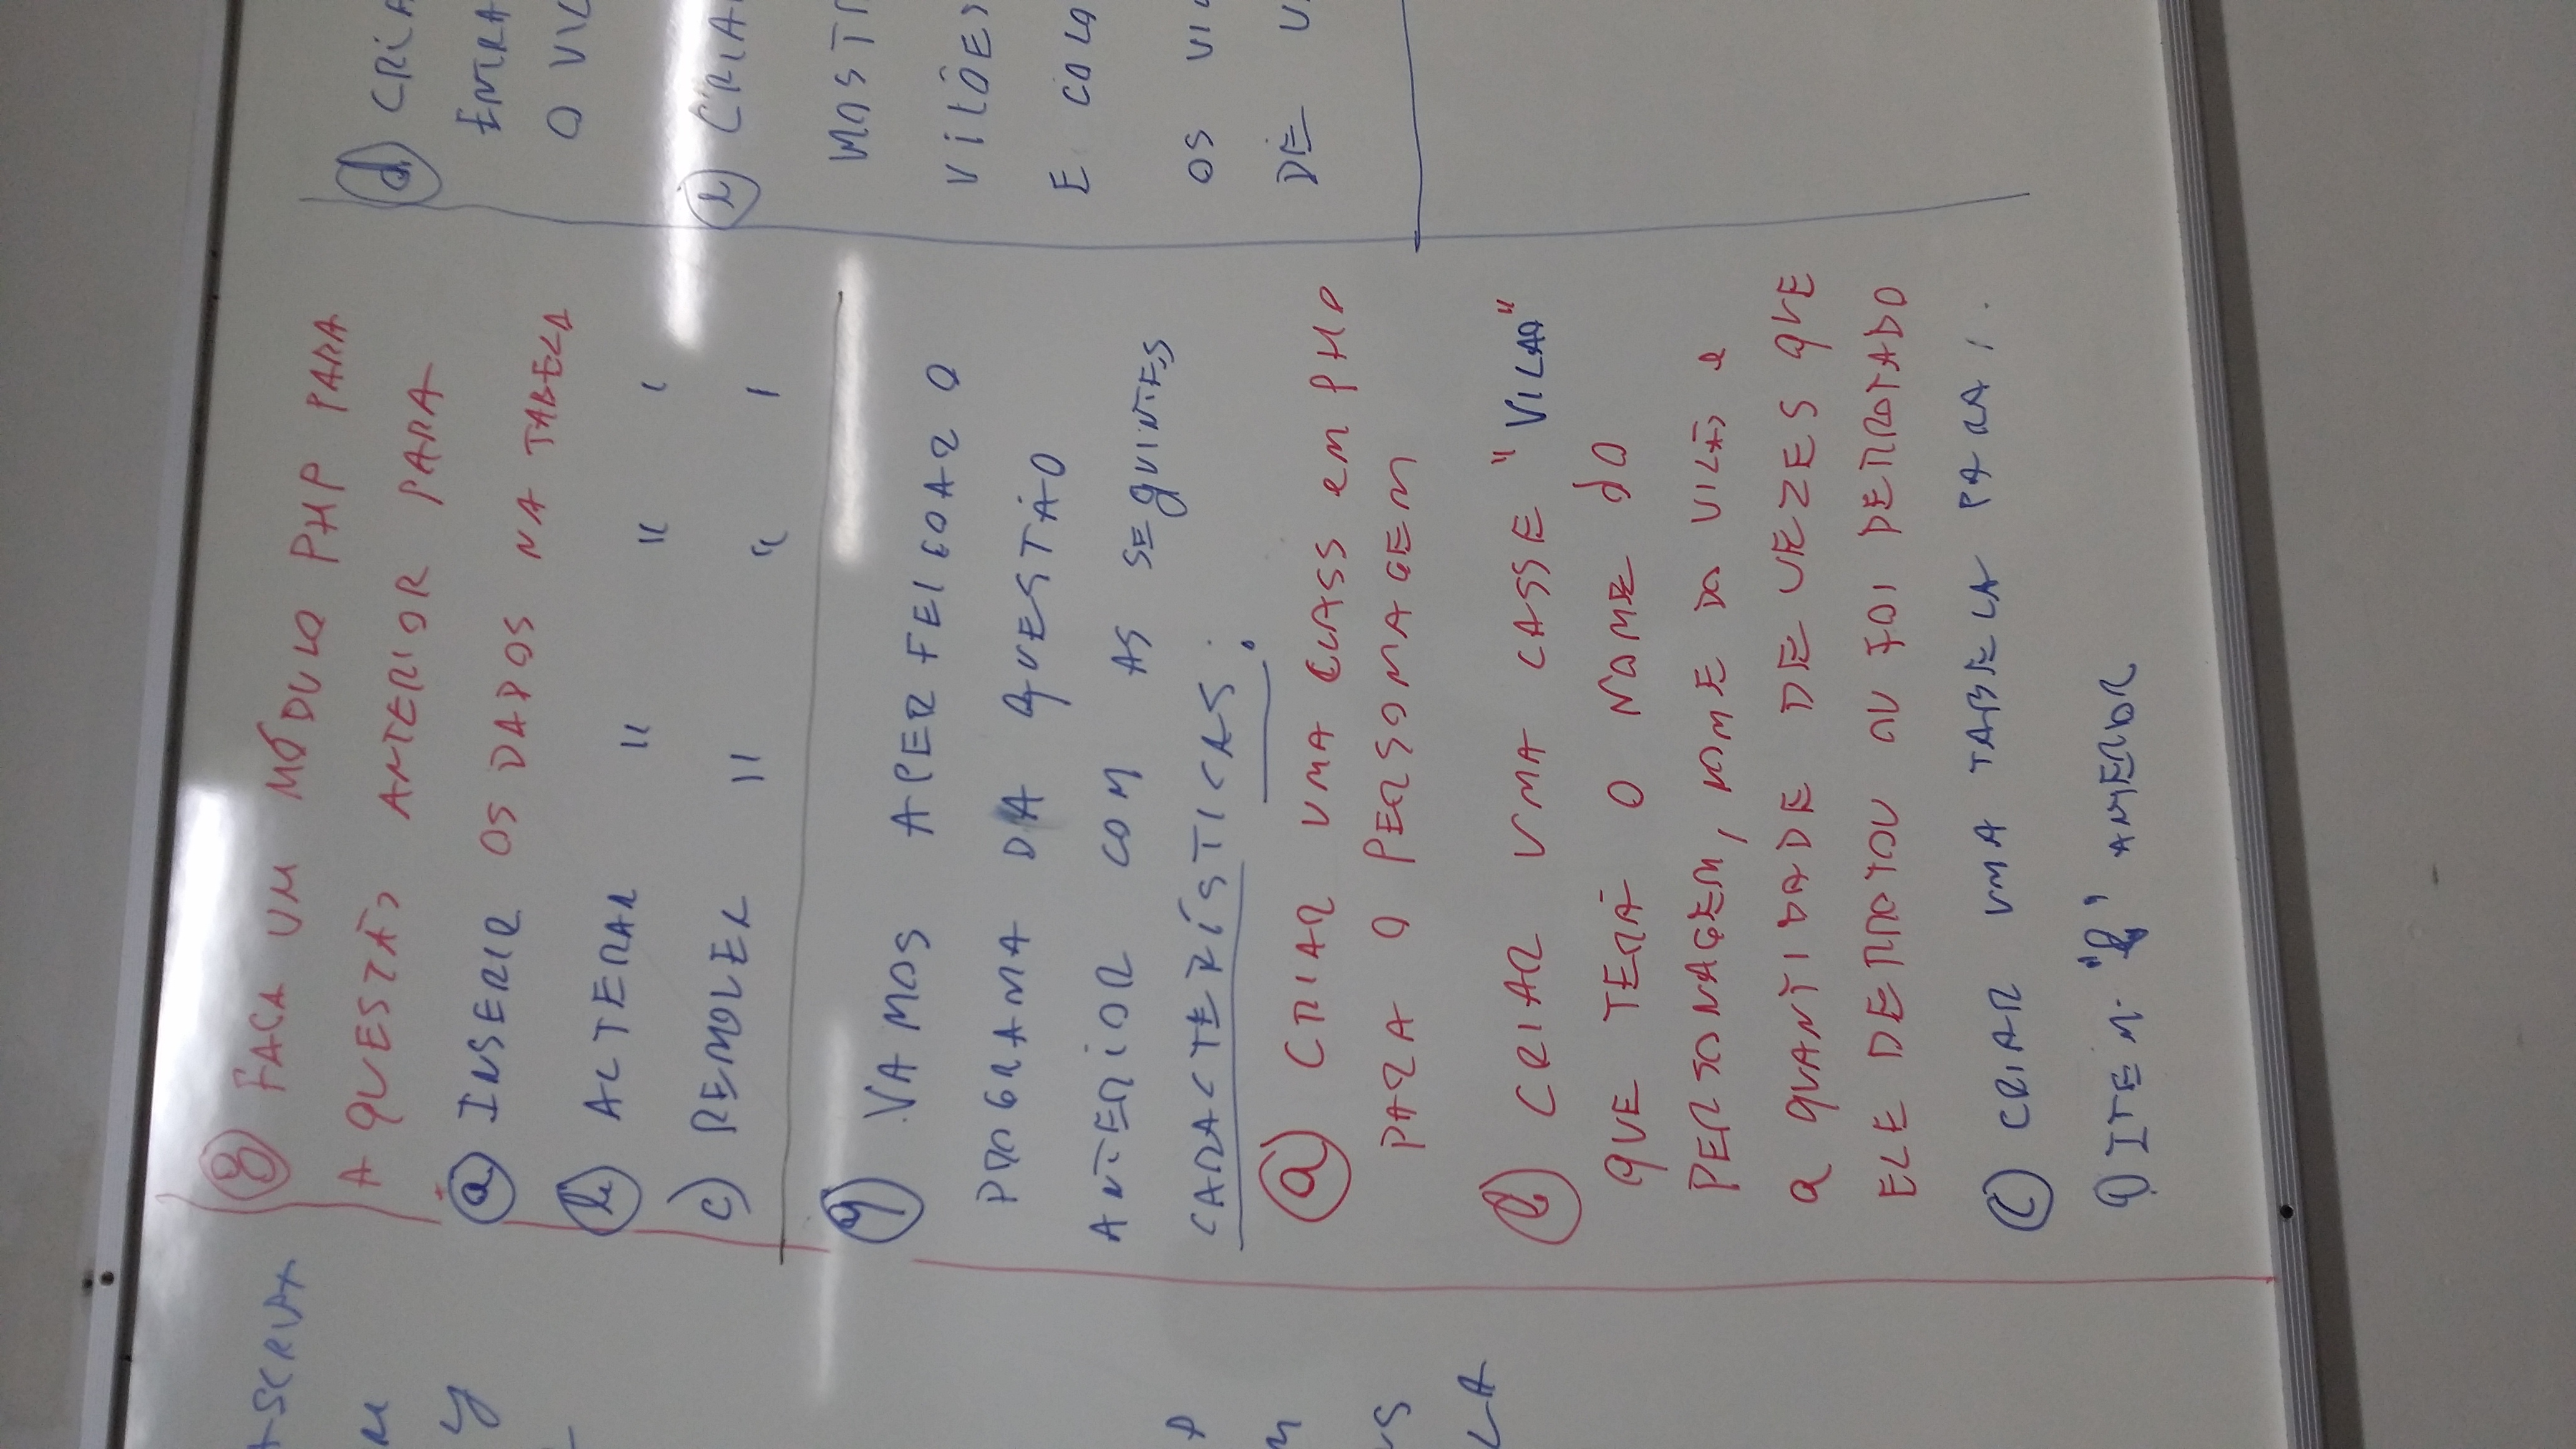 ASCRIPT
M
Y
P
M
US
LA
8 FACA UM MÓDULO PHP PARA
A QUESTÃO ANTERIOR PARA
a INSERIR OS DADOS NA TABELA
b ALTERAR " " '
c) REMOVER " " '
9 VAMOS APERFEIÇOAR O
PROGRAMA DA QUESTÃO
ANTERIOR COM AS SEGUINTES
CARACTERÍSTICAS:
a CRIAR UMA CLASS em PHP
PARA O PERSONAGEM
b CRIAR UMA CASSE "VILAO"
QUE TERÁ O NOME do
PERSONAGEM, NOME DO VILÃO e
a QUANTIDADE DE VEZES QUE
ELE DERROTOU OU FOI DERROTADO
C CRIAR UMA TABELA PARA
O ITEM "b" ANTERIOR
d CRIA
ENTRA
O VIL
e CRIA
MOSTR
VILÕES
E COLO
OS VIL
DE U